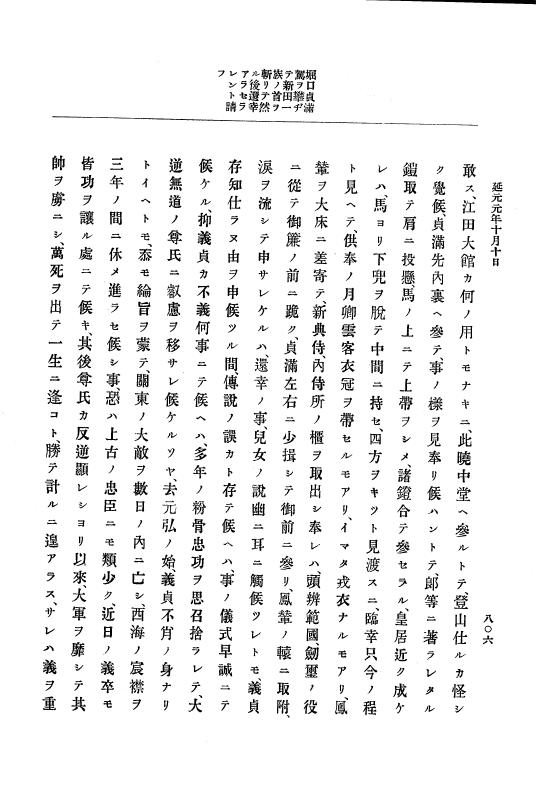 延元元年十月十日
八〇六
堀口貞滿
驚ヲ攀ヂ
テ新田一
族ノ首ヲ
斬リテ然
ル後還幸
アラセラ
レント請
フ
敢ス、江田大館カ何ノ用トモナキニ、此曉中堂ヘ參ルトテ、登山仕ルカ怪シ
ク覺候、貞滿先内裏ヘ參テ、事ノ樣ヲ見奉リ候ハントテ、郎等ニ著ラレタル
鎧取テ肩ニ投懸、馬ノ上ニテ上帶ヲシメ、諸鐙合テ參セラル、皇居近ク成ケ
レハ、馬ヨリ下兜ヲ脱テ中間ニ持セ、四方ヲキツト見渡スニ、臨幸只今ノ程
ト見ヘテ、供奉ノ月卿雲客衣冠ヲ帶セルモアリ、イマタ戎衣ナルモアリ、鳳
輦ヲ大床ニ差寄テ、新典侍、内侍所ノ櫃ヲ取出シ奉レハ、頭辨範國、劒璽ノ役
ニ從テ御簾ノ前ニ跪ク、貞滿左右ニ少揖シテ御前ニ參リ、鳳輦ノ轅ニ取附、
涙ヲ流シテ申サレケルハ、還幸ノ事、兒女ノ説幽ニ耳ニ觸候ツレトモ、義貞
存知仕ラヌ由ヲ申候ツル間、傳説ノ誤カト存テ候ヘハ、事ノ儀式早誠ニテ
候ケル、抑義貞カ不義何事ニテ候ヘハ、多年ノ粉骨忠功ヲ思召捨ラレテ、大
逆無道ノ尊氏ニ叡慮ヲ移サレ候ケルソヤ、去元弘ノ始、義貞不肖ノ身ナリ
トイヘトモ、忝モ綸旨ヲ蒙テ、關東ノ大敵ヲ數日ノ内ニ亡シ、西海ノ宸襟ヲ
三年ノ間ニ休メ進ラセ候シ事、恐ハ上古ノ忠臣ニモ類少ク、近日ノ義卒モ
皆功ヲ讓ル處ニテ候キ、其後尊氏カ反逆顯レシヨリ以來、大軍ヲ靡シテ其
帥ヲ虜ニシ、萬死ヲ出テ一生ニ逢コト、勝テ計ルニ遑アラス、サレハ義ヲ重